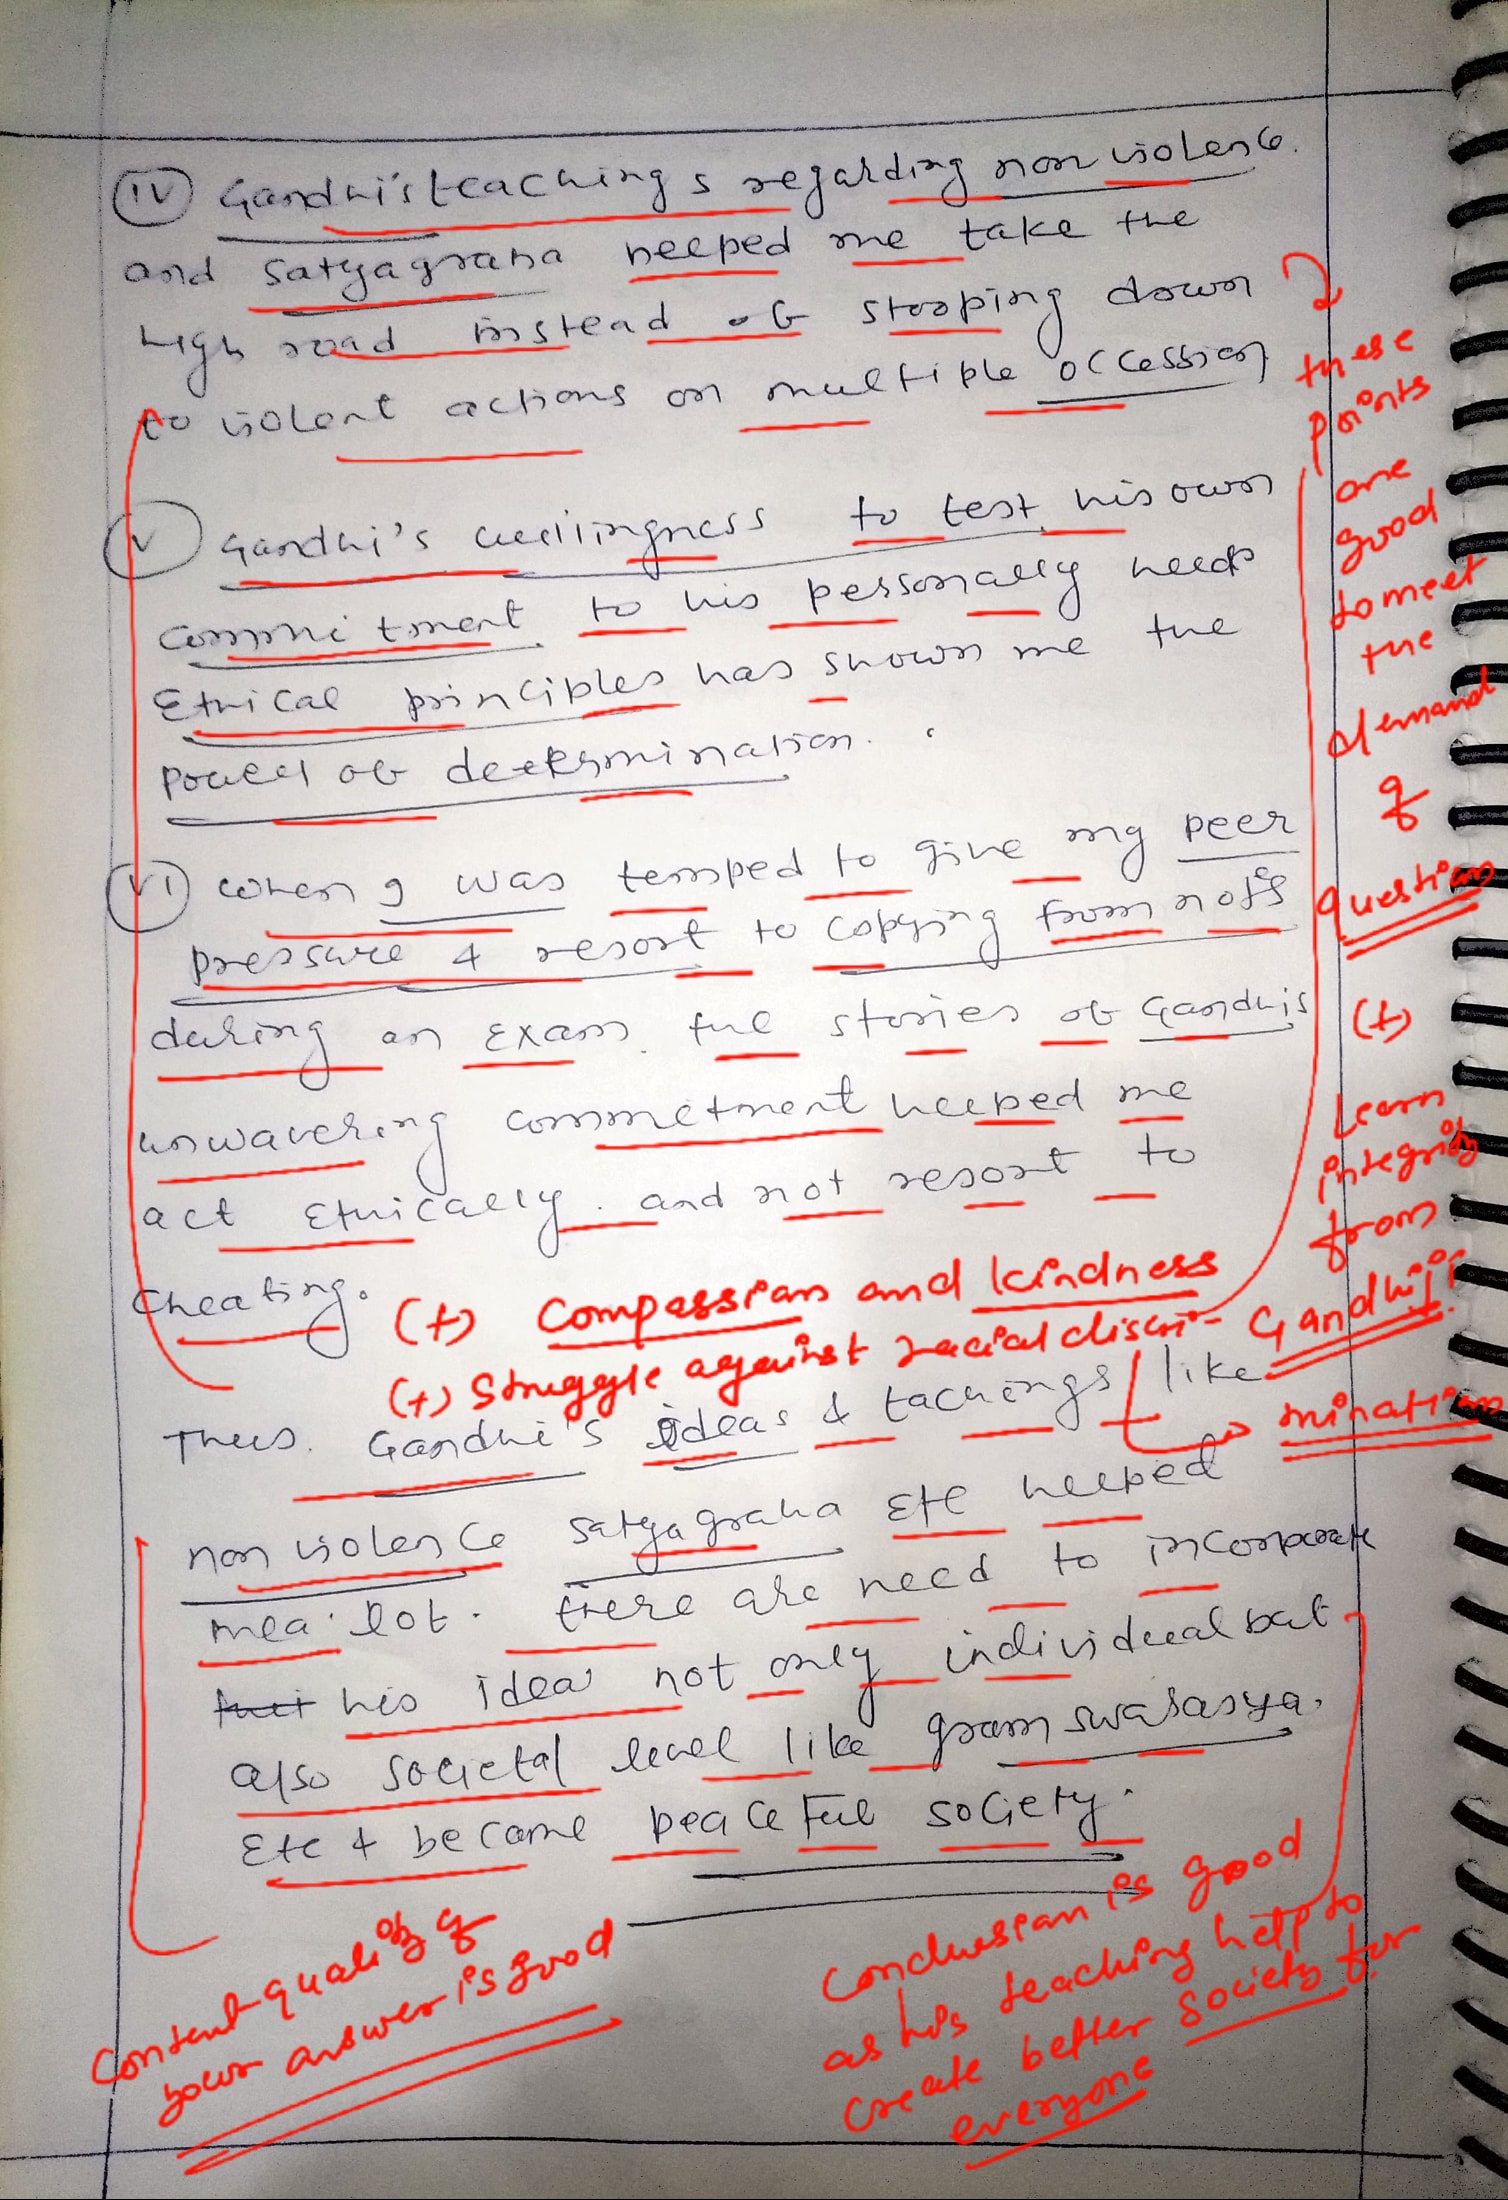 (IV) Gandhi's teachings regarding non violence.
and satyagraha helped me take the
high road instead of stooping down
to violent actions on multiple occession
(V) Gandhi's willingness to test his own
commitment to his personally
Ethical principles has shown me the
power of determination.
(VI) when I was temped to give my peer
pressure & resort to copying from
during an Exam. the stories of Gandhis
unwavering commetment helped me
act Ethically. and not resort to
cheating.
Thus. Gandhi's ideas & tachings like
non violence satyagraha Etc helped
me a lot. there are need to incorporate
his idea not only individual but
also societal level like gram swarasya.
Etc & become peaceful society.
these
points
are
good
to meet
the
demand
of
question
(+)
Learn
integrity
from
Gandhiji
(+) Compassion and kindness
(+) Struggle against racial discri-
mination
Content quality of
your answer is good
Conclusion is good
as his teaching help to
create better society for
everyone